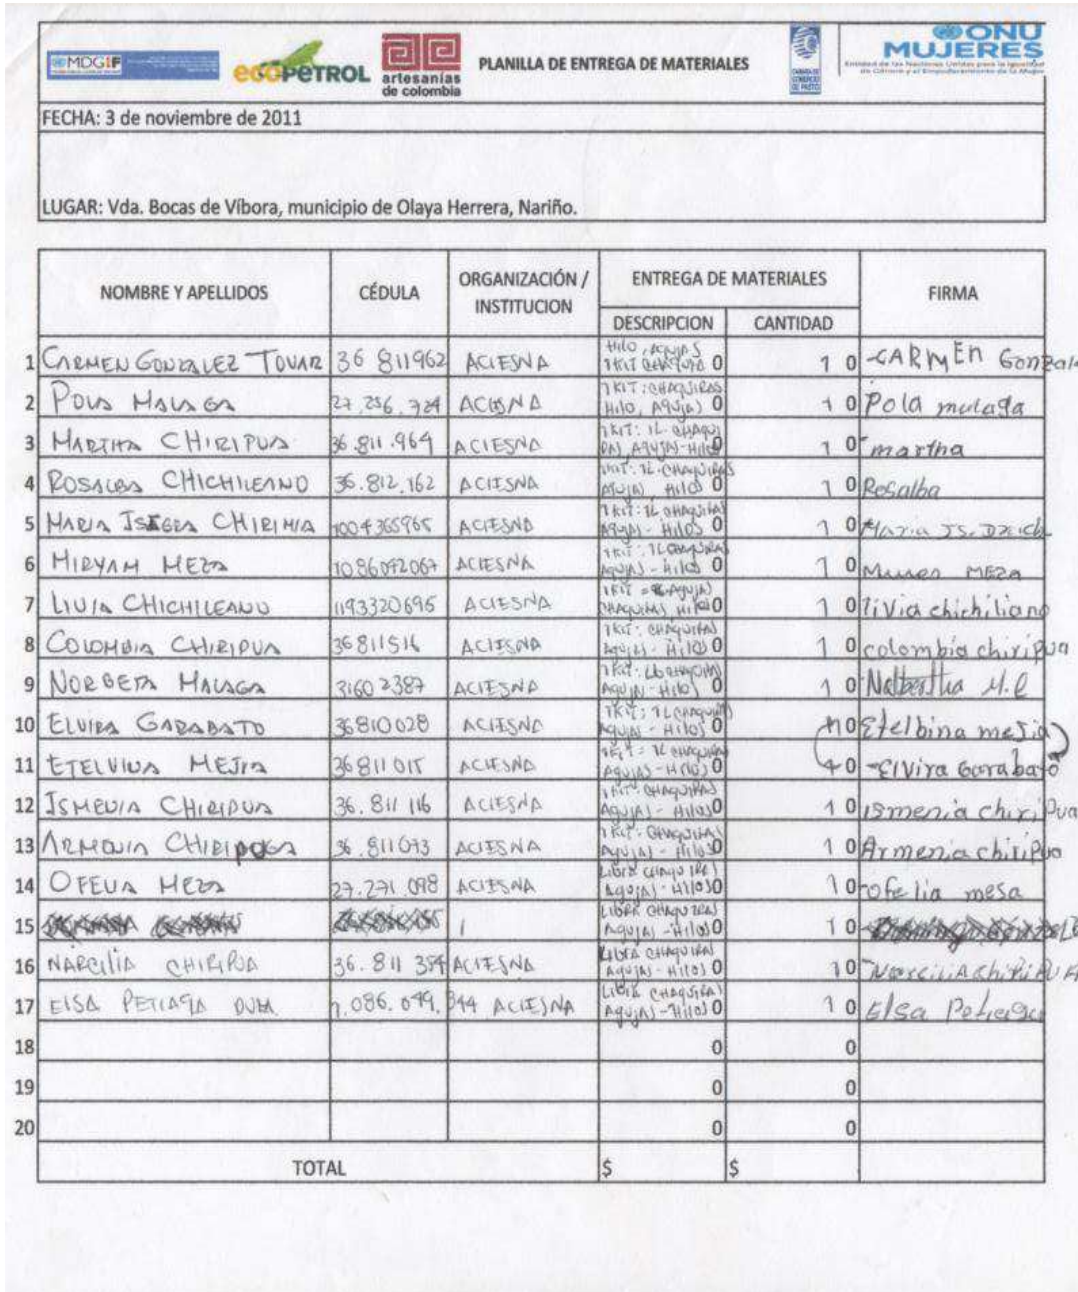 MDGIF
ecoPETROL
artesanías
de colombia
PLANILLA DE ENTREGA DE MATERIALES
CÁMARA DE
COMERCIO
DE PASTO
ONU
MUJERES
Entidad de las Naciones Unidas para la Igualdad
de Género y el Empoderamiento de la Mujer
FECHA: 3 de noviembre de 2011
LUGAR: Vda. Bocas de Víbora, municipio de Olaya Herrera, Nariño.
NOMBRE Y APELLIDOS CÉDULA ORGANIZACIÓN / INSTITUCION ENTREGA DE MATERIALES FIRMA
DESCRIPCION CANTIDAD
1 CARMEN GONZALEZ TOVAR 36 811962 ACIESNA HILO, AGUJAS 1 KIT CHAQUIRA 0 1 0 CARMEN Gonzale
2 POLA MALAGA 27.256.724 ACIESNA 1 KIT: CHAQUIRAS HILO, AGUJAS 0 1 0 Pola malaga
3 MARTHA CHIRIPUA 36.811.964 ACIESNA 1 KIT: 1L. CHAQUI RAS, AGUJAS-HILOS 0 1 0 martha
4 ROSALBA CHICHILEANO 36.812.162 ACIESNA 1 KIT: 1L. CHAQUIRAS AGUJAS HILOS 0 1 0 Rosalba
5 MARIA CHIRIMIA 1004365965 ACIESNA 1 KIT: 1L CHAQUIRAS AGUJAS - HILOS 0 1 0 Maria IS.
6 MIRYAM MEZA 1086072067 ACIESNA 1 KIT: 1L CHAQUIRAS AGUJAS - HILOS 0 1 0 MEZA
7 LIVIA CHICHILEANO 1193320695 ACIESNA 1 KIT = AGUJAS CHAQUIRAS HILOS 0 1 0 livia chichiliano
8 COLOMBIA CHIRIPUA 36811516 ACIESNA 1 KIT: CHAQUIRAS AGUJAS - HILOS 0 1 0 colombia chiripua
9 NORBETA MALAGA 31602387 ACIESNA 1 KIT: LB CHAQUIRAS AGUJAS - HILOS 0 1 0 M.
10 ELVIRA GARABATO 36810028 ACIESNA 1 KIT: 1L CHAQUIRAS AGUJAS - HILOS 0 1 0 Etelbina mejia
11 ETELVINA MEJIA 36811015 ACIESNA 1 KIT: 1L CHAQUIRAS AGUJAS - HILOS 0 1 0 Elvira Garabato
12 ISMENIA CHIRIPUA 36. 811 116 ACIESNA 1 KIT CHAQUIRAS AGUJAS - HILOS 0 1 0 ismenia chiripua
13 ARMENIA CHIRIPUA 36.811073 ACIESNA 1 KIT: CHAQUIRAS AGUJAS - HILOS 0 1 0 Armenia chiripua
14 OFELIA MEZA 27.271.098 ACIESNA LIBRA CHAQUIRAS AGUJAS - HILOS 0 1 0 ofelia mesa
15 LIBRA CHAQUIRAS AGUJAS - HILOS 0 1 0
16 NARCILIA CHIRIPUA 36. 811 354 ACIESNA LIBRA CHAQUIRAS AGUJAS - HILOS 0 1 0 Narcilia chiripua
17 ELSA PETIAGA 1.086.049.344 ACIESNA LIBRA CHAQUIRAS AGUJAS - HILOS 0 1 0 Elsa Petiaga
18 0 0
19 0 0
20 0 0
TOTAL $ $